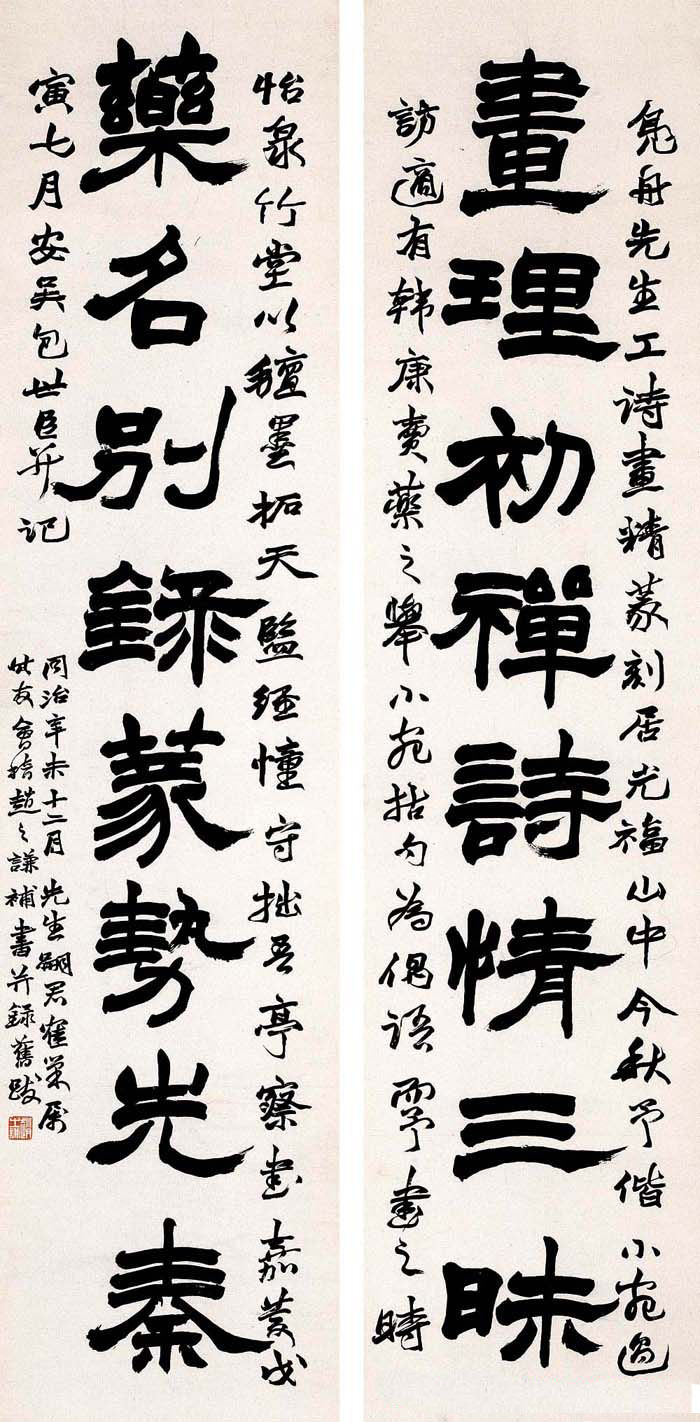 鳧舟先生工詩畫精篆刻居光福山中今秋予偕小宛過
畫理初禪詩情三昧
訪適有韓康賣藥之舉小宛拈句為偶語予書之時
怡泉竹堂以氈墨拓天監經幢守拙吾亭察書嘉慶戊
藥名別錄篆勢先秦
寅七月安吳包世臣并記
同治辛未十二月先生嗣君巢屬
友會稽趙之謙補書并錄舊跋